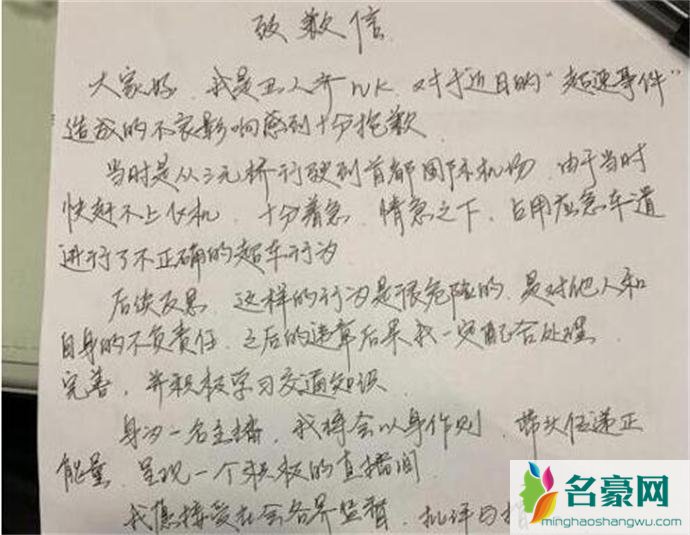 致歉信
大家好,我是丑人齐NK,对于近日的“超速事件”
造成的不良影响感到十分抱歉
当时是从三元桥行驶到首都国际机场,由于当时
快赶不上飞机,十分着急,情急之下,占用应急车道
进行了不正确的超车行为
后续反思,这样的行为是很危险的,是对他人和
自身的不负责任,之后的违章后果我一定配合处理
完善,并积极学习交通知识
身为一名主播,我将会以身作则,带头传递正
能量,呈现一个积极的直播间
我愿接受社会各界监督,批评与
名豪网
minghaoshangwu.com